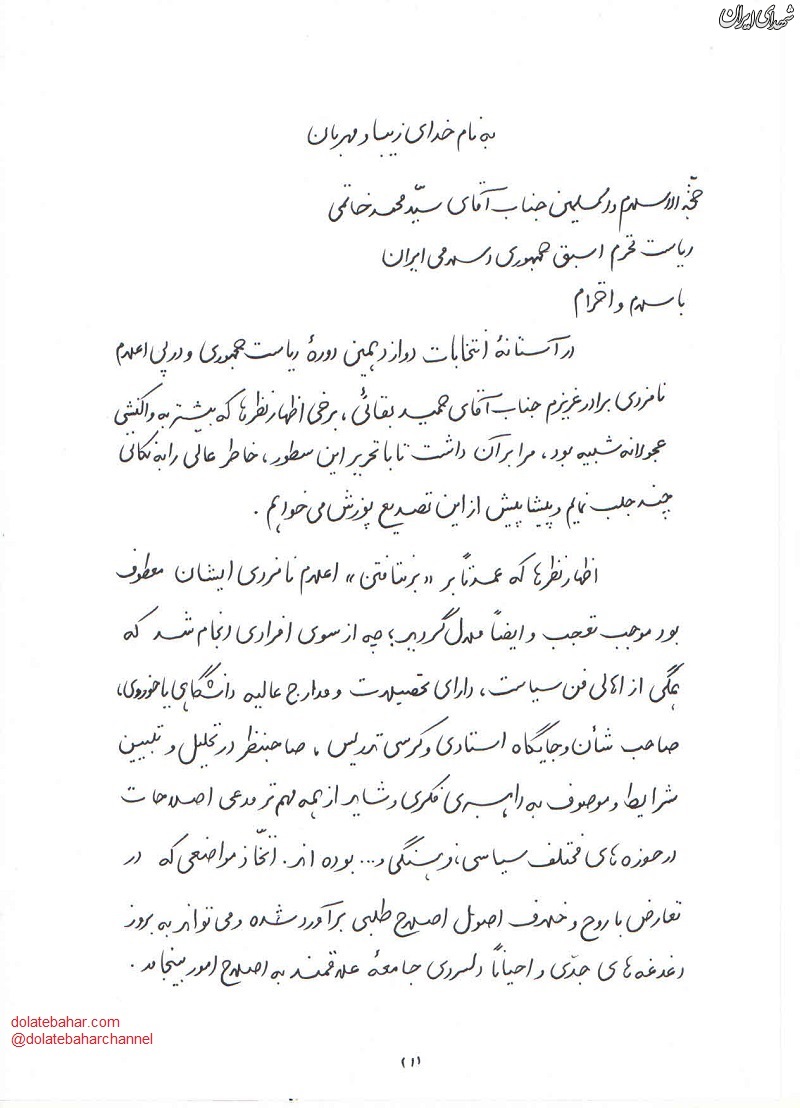 شهدای ایران
به نام خدای زیبا و مهربان
حجّة الاسلام والمسلمین جناب آقای سیّد محمد خاتمی
ریاست محترم اسبق جمهوری اسلامی ایران
با سلام و احترام
در آستانهٔ انتخابات دوازدهمین دورهٔ ریاست جمهوری و در پی اعلام
نامزدی برادر عزیزم جناب آقای حمید بقائی، برخی اظهارنظرها که بیشتر به واکنشی
عجولانه شبیه بود، مرا بر آن داشت تا با تحریر این سطور، خاطر عالی را به نکاتی
چند جلب نمایم و پیشاپیش از این تصدیع پوزش می‌خواهم.
اظهارنظرها که عمدتاً بر «برنتافتن» اعلام نامزدی ایشان معطوف
بود موجب تعجب و ایضاً ملال گردید؛ چه از سوی افرادی انجام شد که
همگی از اهالی فن سیاست، دارای تحصیلات و مدارج عالیه دانشگاهی یا حوزوی،
صاحب شأن و جایگاه استادی و کرسی تدریس، صاحبنظر در تحلیل و تبیین
شرایط و موصوف به راهبری فکری و شاید از همه مهم‌تر مدعی اصلاحات
در حوزه های مختلف سیاسی، فرهنگی و... بوده اند. اتّخاذ مواضعی که در
تعارض با روح و خلاف اصول اصلاح طلبی برآورد شده و می‌تواند به بروز
دغدغه های جدّی و احیاناً دلسردی جامعهٔ علاقمند به اصلاح امور بینجامد.
dolatebahar.com
@dolatebaharchannel
(۱)